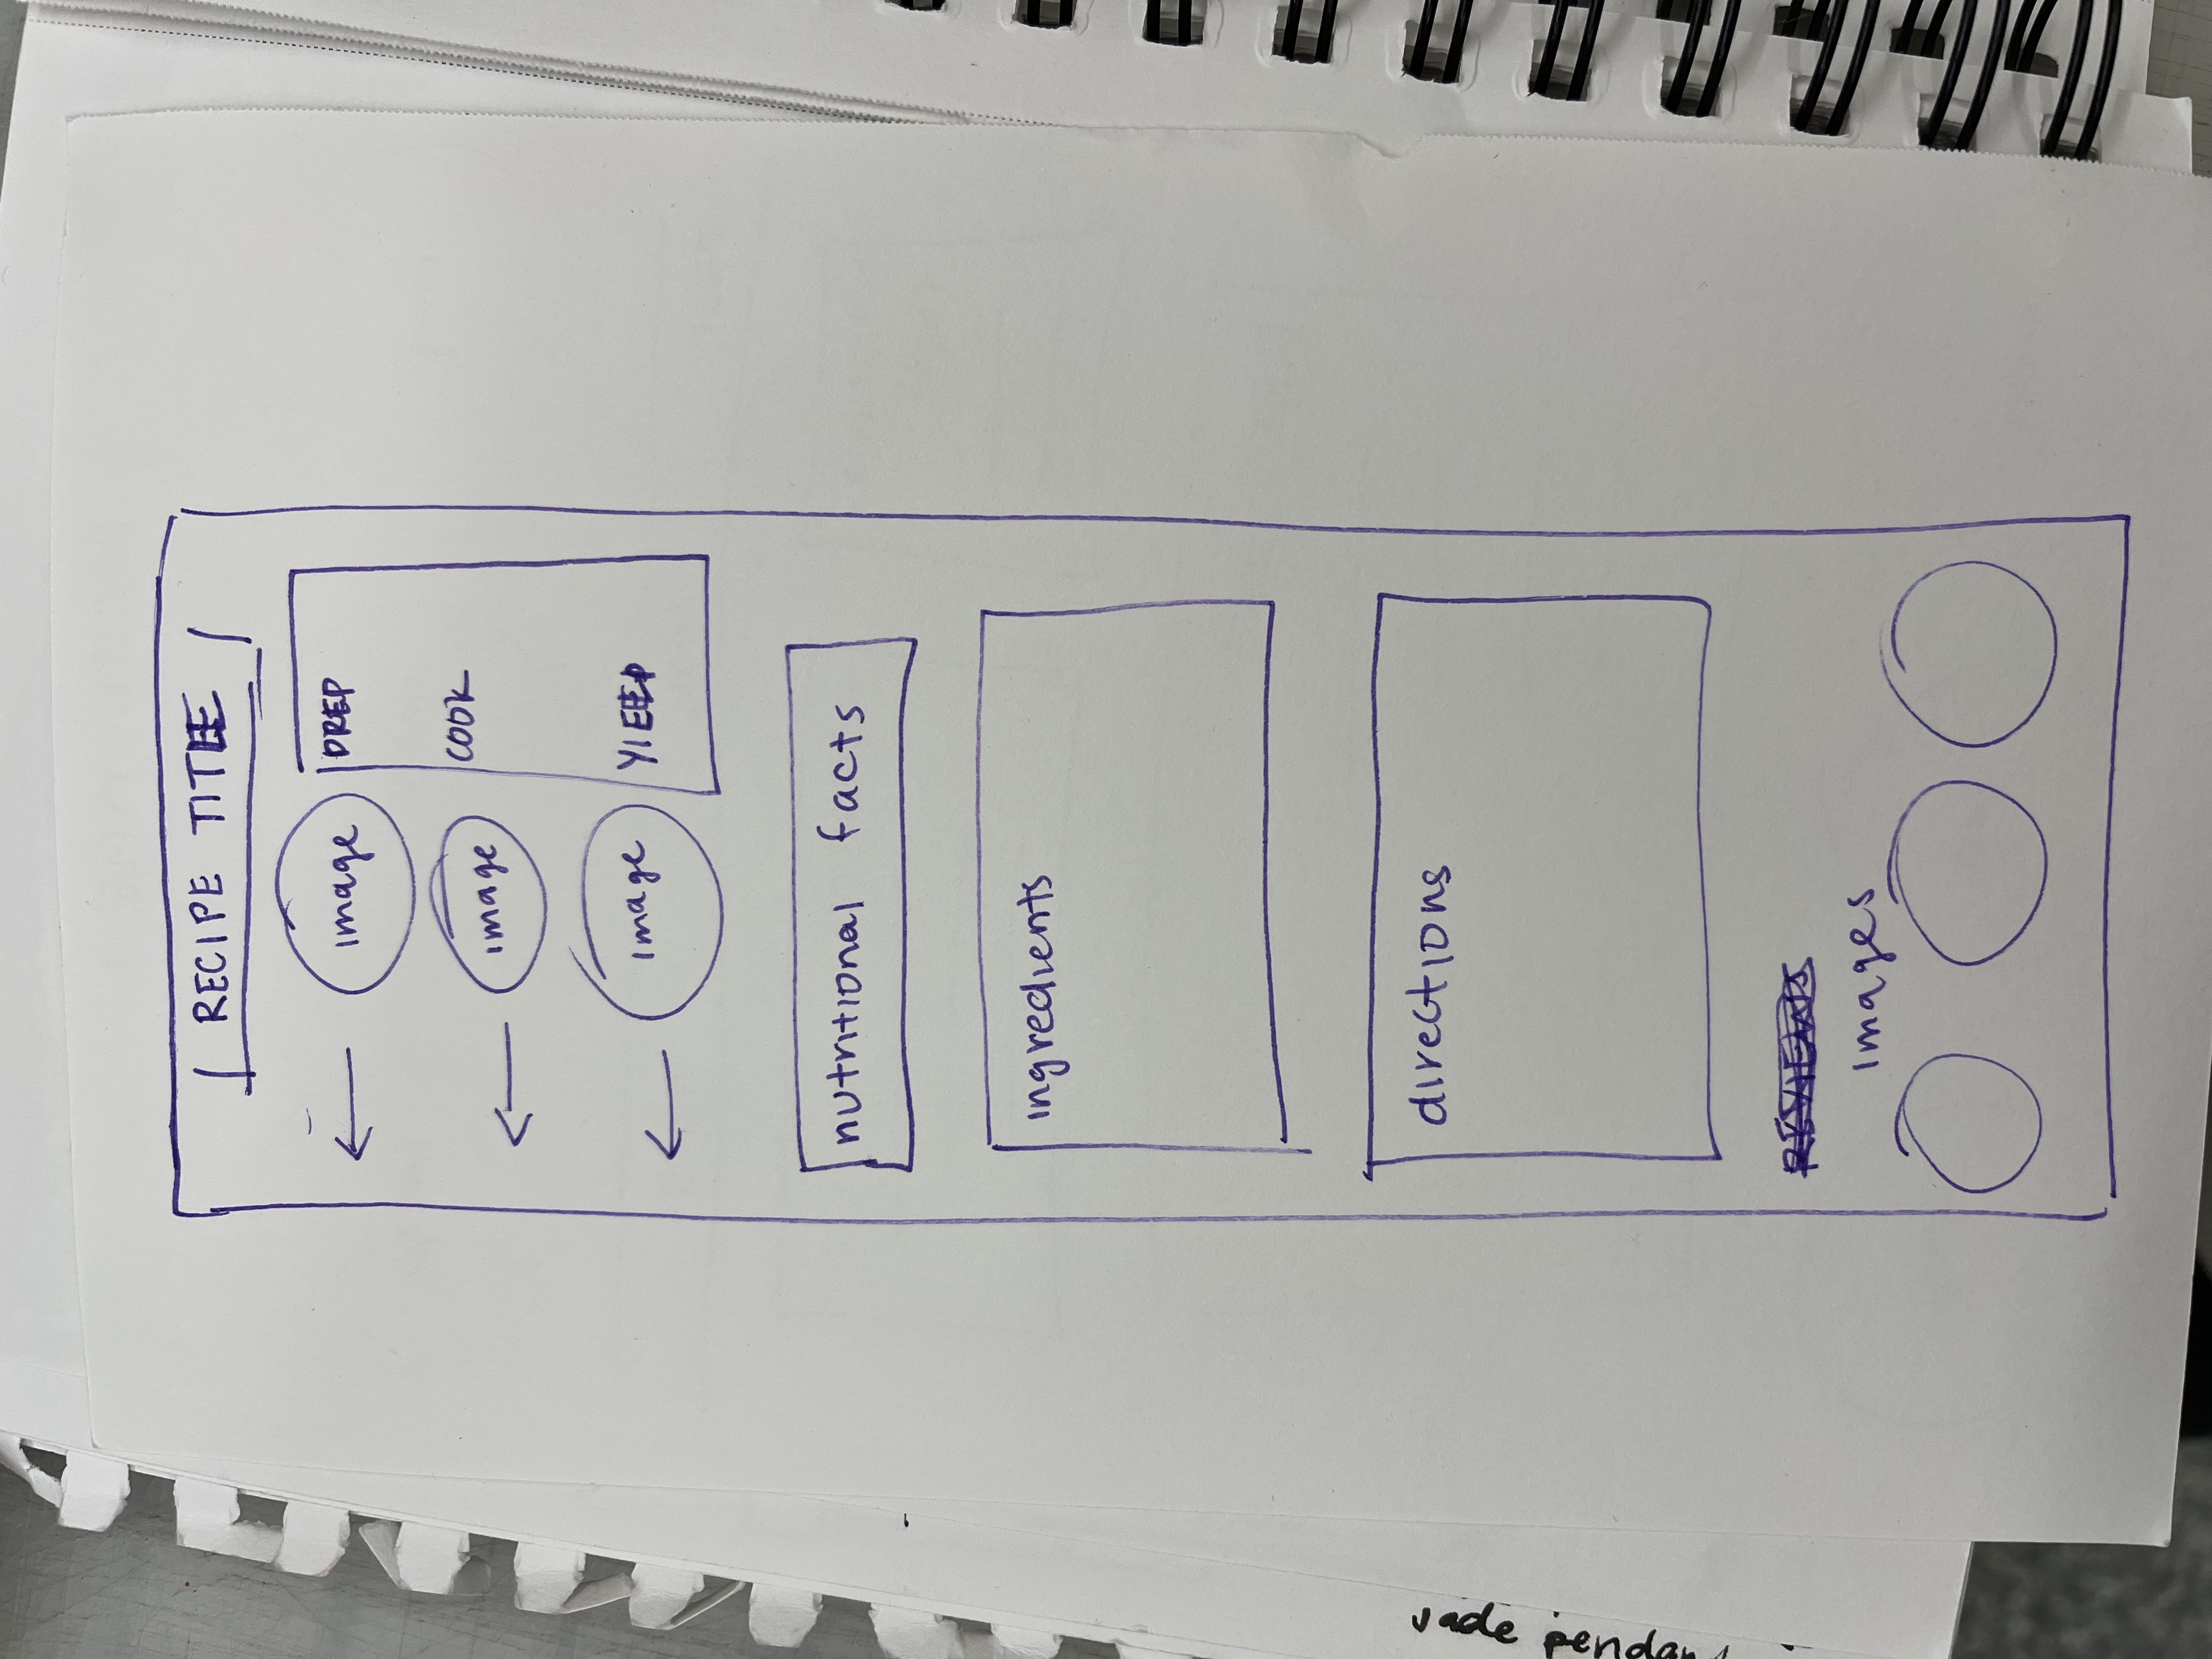 RECIPE TITLE
image
PREP
image
COOK
image
YIELD
nutritional facts
ingredients
directions
REVIEWS
images
vade